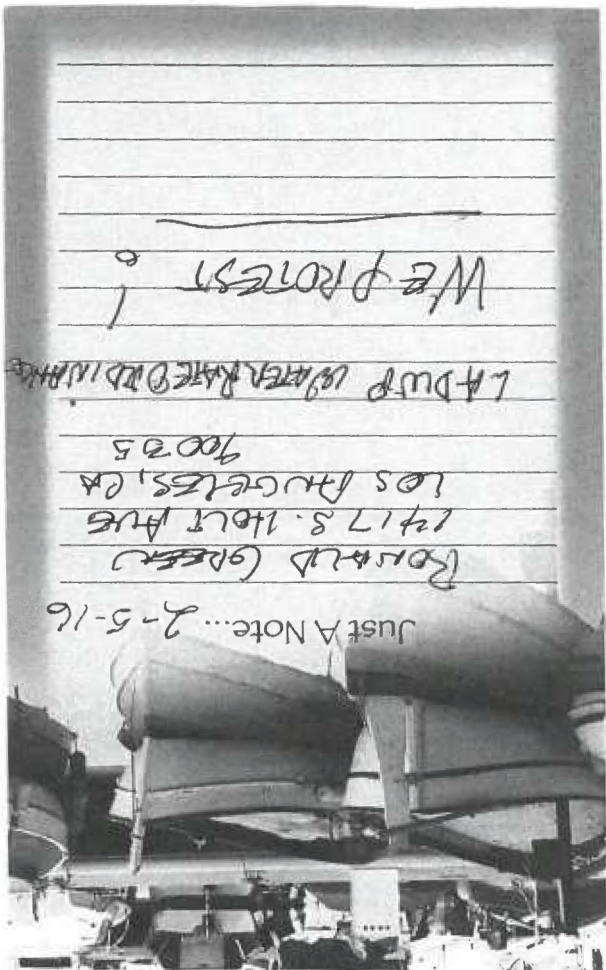 Just A Note... 2-5-16
RONALD GREEN
1417 S. HOLT AVE
LOS ANGELES, CA
90035
LADWP WATER RATE ORDINANCE
WE PROTEST !